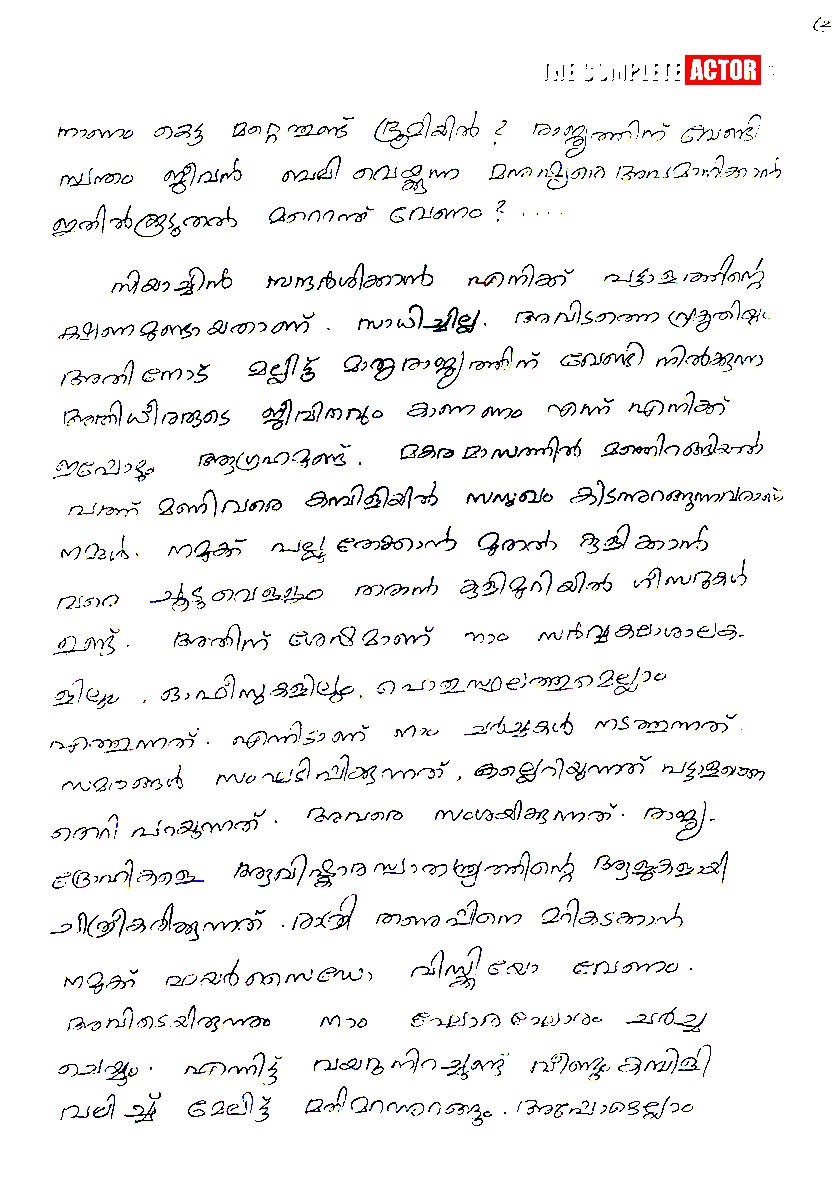 (2
THE COMPLETE ACTOR
നാണം കെട്ട മറ്റെന്തുണ്ട് ഭൂമിയിൽ ? രാജ്യത്തിന് വേണ്ടി
സ്വന്തം ജീവൻ ബലി വെയ്ക്കുന്ന മനുഷ്യരെ അപമാനിക്കാൻ
ഇതിൽക്കൂടുതൽ മറെറന്ത് വേണം ? ....
സിയാച്ചിൻ സന്ദർശിക്കാൻ എനിക്ക് പട്ടാളത്തിന്റെ
ക്ഷണമുണ്ടായതാണ് . സാധിച്ചില്ല. അവിടത്തെ പ്രകൃതിയും
അതിനോട് മല്ലിട്ട് മാതൃരാജ്യത്തിന് വേണ്ടി നിൽക്കുന്ന
അതിധീരരുടെ ജീവിതവും കാണണം എന്ന് എനിക്ക്
ഇപ്പോഴും ആഗ്രഹമുണ്ട്. മകരമാസത്തിൽ മഞ്ഞിറങ്ങിയാൽ
പത്ത് മണിവരെ കമ്പിളിയിൽ സസുഖം കിടന്നുറങ്ങുന്നവരാണ്
നമ്മൾ. നമുക്ക് പല്ലു തേക്കാൻ മുതൽ കുളിക്കാൻ
വരെ ചൂടുവെള്ളം തരാൻ കുളിമുറിയിൽ ഗീസറുകൾ
ഉണ്ട്. അതിന് ശേഷമാണ് നാം സർവ്വകലാശാലക-
ളിലും , ഓഫീസുകളിലും, പൊതുസ്ഥലത്തുമെല്ലാം
എത്തുന്നത്. എന്നിട്ടാണ് നാം ചർച്ചകൾ നടത്തുന്നത്.
സമരങ്ങൾ സംഘടിപ്പിക്കുന്നത്, കല്ലെറിയുന്നത് പട്ടാളത്തെ
തെറി പറയുന്നത്. അവരെ സംശയിക്കുന്നത്. രാജ്യ-
ദ്രോഹികളെ ആവിഷ്കാരസ്വാതന്ത്ര്യത്തിന്റെ ആളുകളായി
ചിത്രീകരിക്കുന്നത്. രാത്രി തണുപ്പിനെ മറികടക്കാൻ
നമുക്ക് ഫയർസൈഡോ വിസ്കിയോ വേണം.
അവിടെയിരുന്നും നാം ഘോരഘോരം ചർച്ച
ചെയ്യും. എന്നിട്ട് വയറുനിറച്ചുണ്ട് വീണ്ടും കമ്പിളി
വലിച്ച് മേലിട്ട് മതിമറന്നുറങ്ങും. അപ്പോഴെല്ലാം